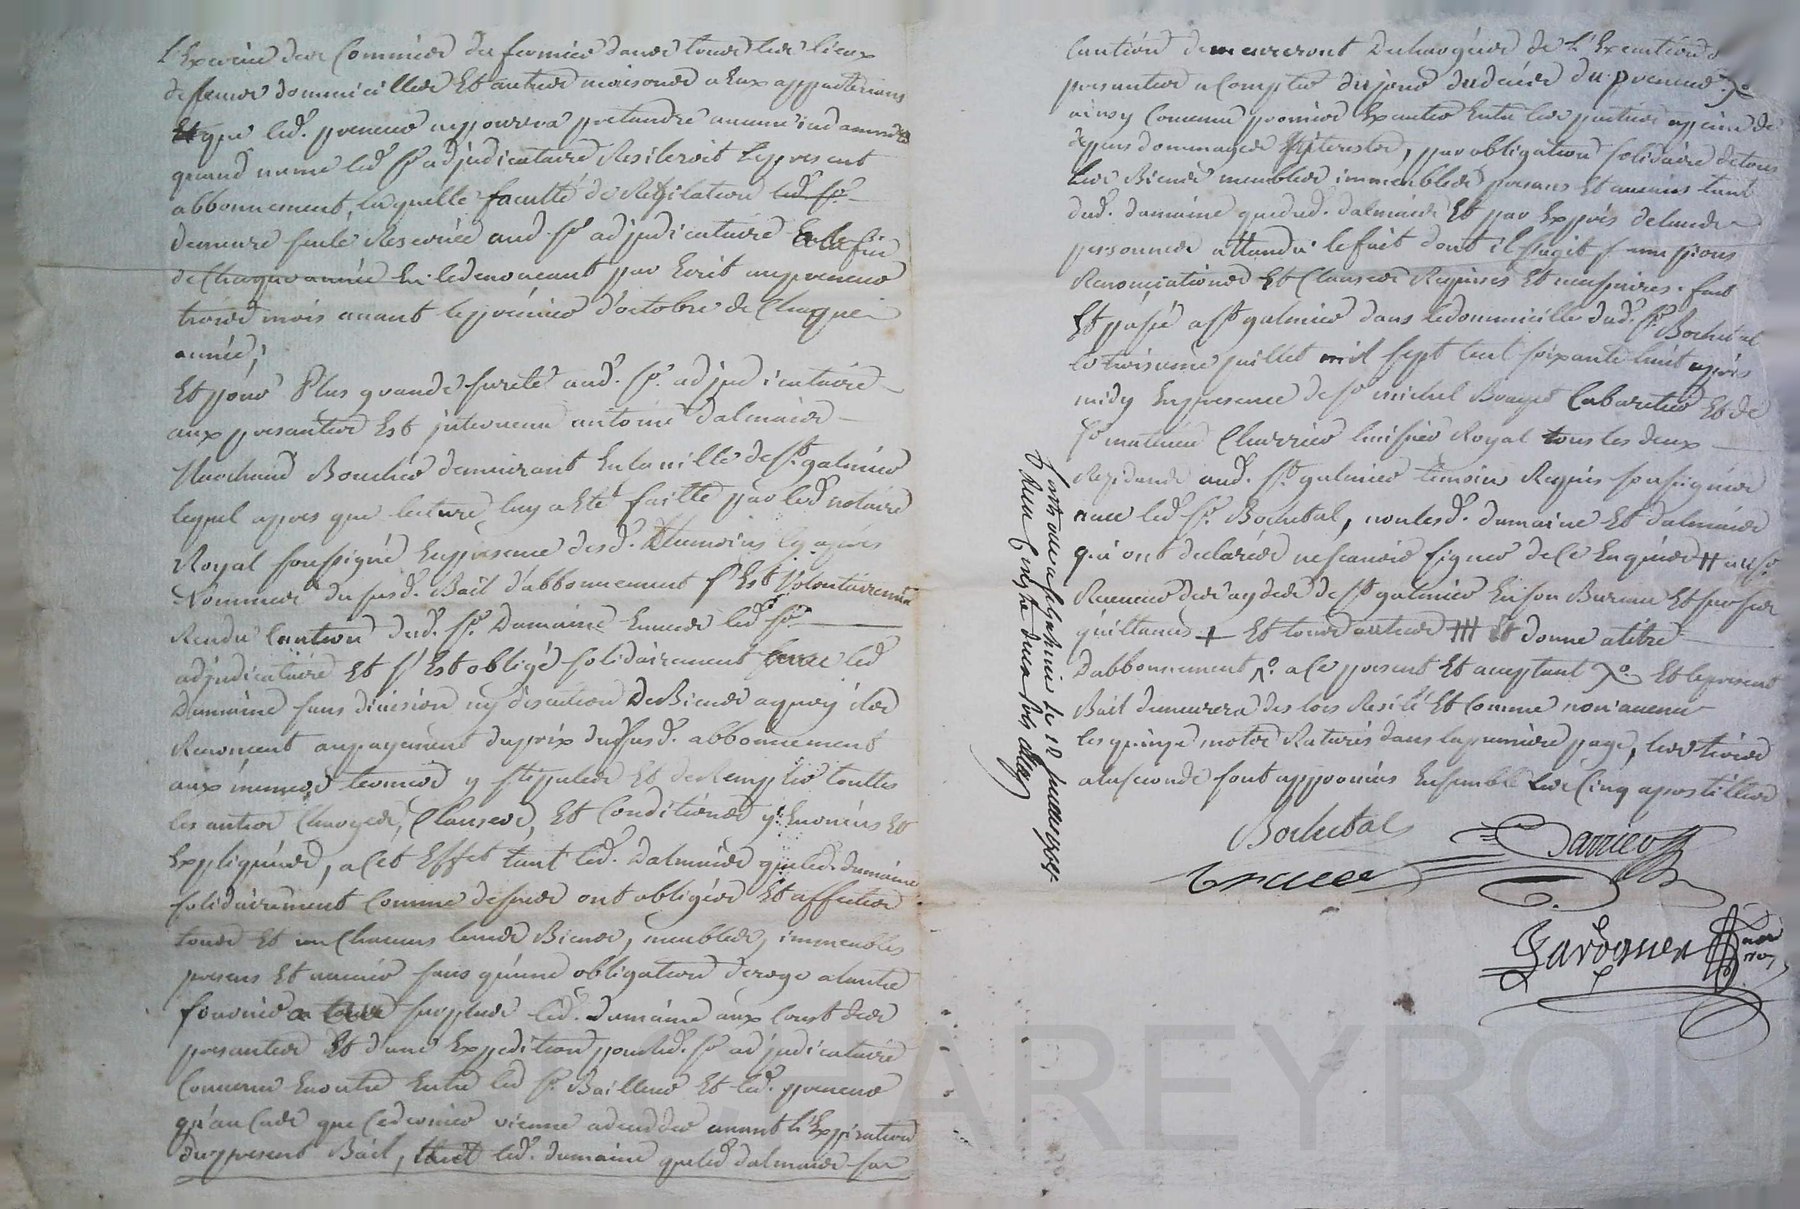 l'Exercice des Commis du fermier dans tous les lieux
dessus domicilles Et autres maisons a Eux appartenans
Et que led. preneur ne pourra pretandre aucune indamnité
quand meme led. Sr. adjudicataire Resileroit le present
abbonnement, laquelle faculté de Resiliation led. Sr.
demeure seule Reservée aud. Sr. adjudicataire a la fin
de Chaque année En le denoncant par Ecrit au preneur
trois mois avant le premier d'octobre de Chaque
année;
Et pour Plus grande sureté aud. Sr. adjudicataire
aux presantes Est intervenu antoine dalmais
Marchand Boucher demeurant En la ville de St. galmier
lequel apres que lecture luy a Eté faitte par led. notaire
Royal soussigné En presence desd. temoins cy apres
Nommés du susd. Bail d'abbonnement s'Est Volontairement
Rendu Caution dud. Sr. Dumaine Envers led. Sr.
adjudicataire Et s'Est obligé solidairement avec led.
Dumaine sans division ny discution De Biens a quoy ils
Renoncent au payement du prix du susd. abbonnement
aux mêmes termes y stipules Et de Remplir touttes
les autres Charges, Clauses, Et Conditions y Enoncées Et
Expliquées, a Cet Effet tant led. Dalmais que led. dumaine
solidairement Comme dessus ont obligés Et affectés
tous Et un Chacuns leurs Biens, meubles, immeubles
presens Et avenir sans qu'une obligation deroge a l'autre
fournira led. dumaine aux Coust des
presantes Et d'une Expedition pour led. Sr. adjudicataire
Convenu Enoutre Entre led. Sr. Bailleur Et led. preneur
qu'au Cas que Ce dernier vienne a deceder avant l'Expiration
du present Bail, led. dumaine que led. dalmais sa
Caution demeureront dechargés de l'Execution des
presantes a Compter du jour du decès du preneur
ainsy Convenu promis Executer Entre les parties a peine de
depens dommages Interests, par obligation solidaire de tous
Les Biens meubles immeubles presens Et avenirs tant
dud. dumaine que dud. dalmais Et par Exprès de leurs
personnes attandu le fait dont il s'agit
Renonciations Et Clauses Requises Et necessaires. fait
Et passé a St. galmier dans le domicille dud. Sr. Bochetal
le troisieme juillet mil sept Cent soixante huit apres
midy En presence de Sr. michel Cabaretier Et de
Sr. mathieu Charrier huissier Royal tous les deux
Residants aud. St. galmier temoins Requis soussignés
avec led. Sr. Bochetal, non lesd. dumaine Et dalmais
qui ont declarés ne scavoir signer de Ce Enquis # au Sr.
Receveur des aydes de St. galmier En son Bureau Et sur ses
quittances + Et tous autres ## Et donne a titre
d'abbonnement a Ce present Et acceptant Et le present
Bail demeurera des lors Resilé Et Comme non avenu
les quinze mots Raturés dans la premiere page, les trois
a la seconde sont approuvés Ensemble Les Cinq apostilles
Bochetal
Charrier